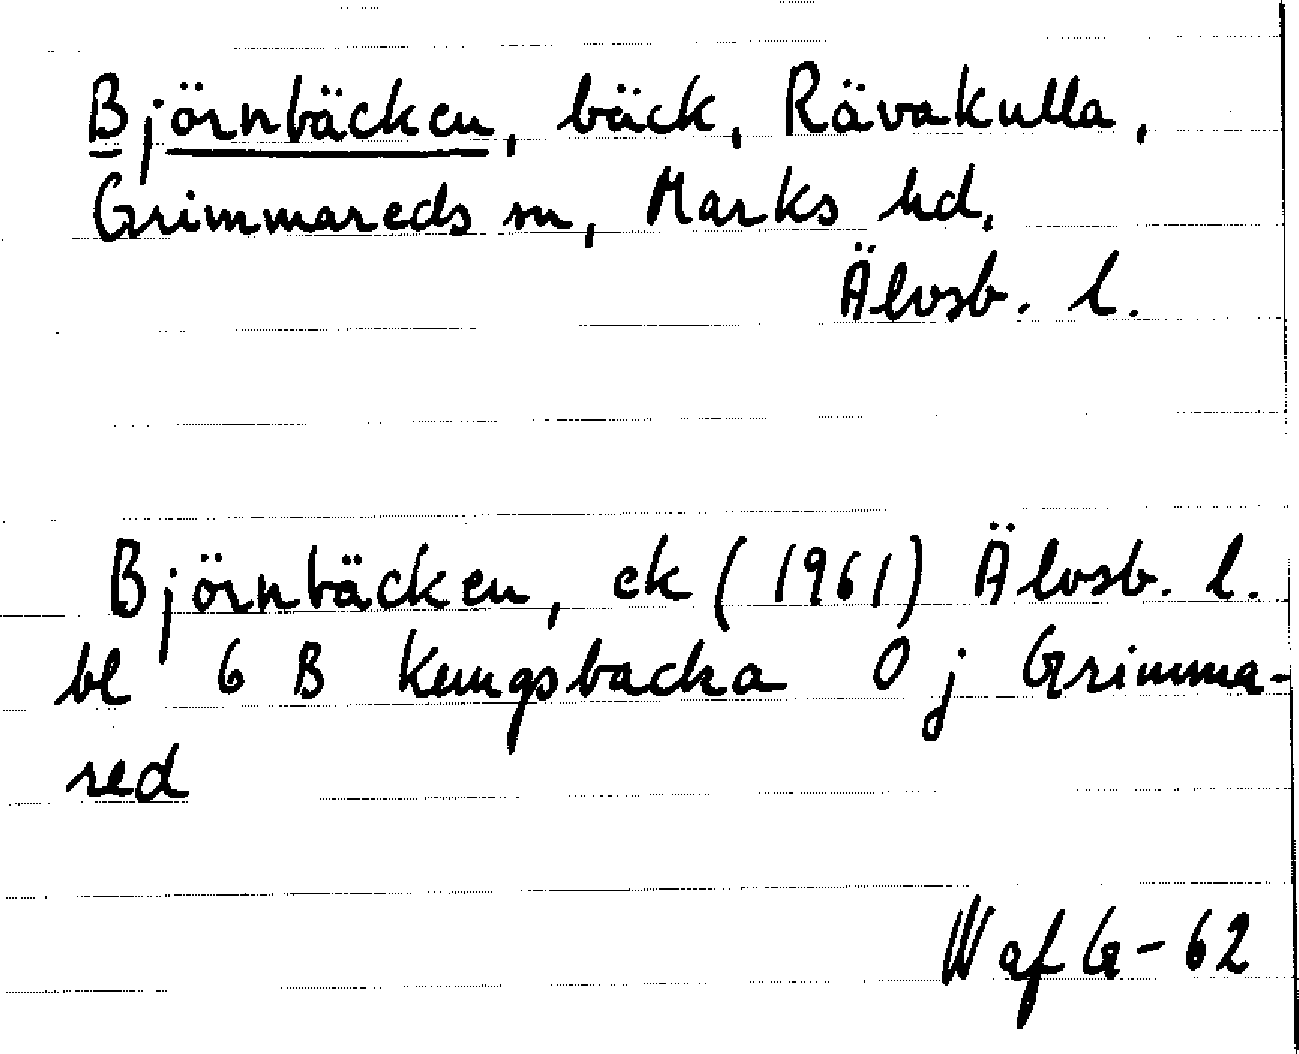 Björnbäcken, bäck, Rävakulla,
Grimmareds sn, Marks hd,
Älvsb. l.
Björnbäcken, ek (1961) Älvsb. l.
bl 6 B Kungsbacka 0 j Grimma-
red
W af G-62